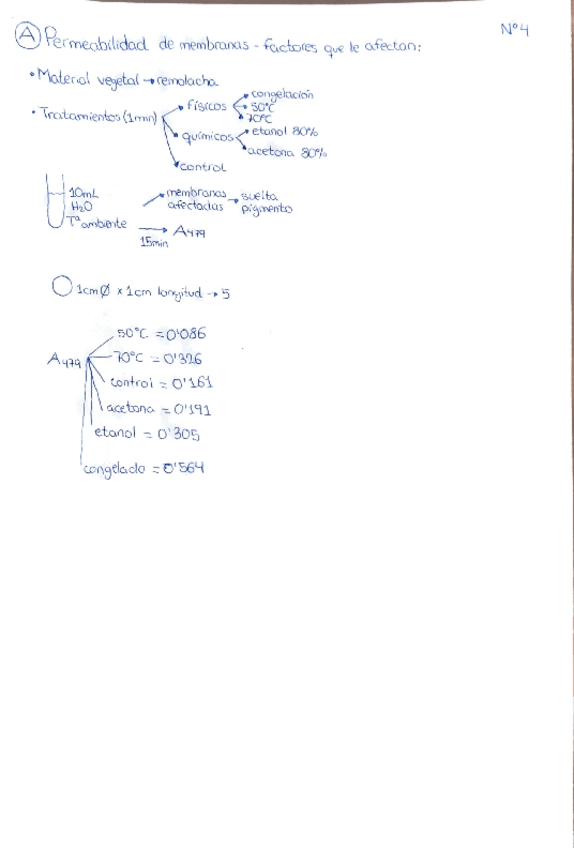 Nº4
A Permeabilidad de membranas - factores que le afectan:
• Material vegetal → remolacha
• Tratamientos (1min)
físicos
congelación
50°C
70°C
químicos
etanol 80%
acetona 80%
control
10mL
H₂O
Tª ambiente
membranas afectadas → suelta pigmento
15min → A₄₇₉
1cm Ø x 1cm longitud → 5
A₄₇₉
50°C = 0'086
70°C = 0'326
control = 0'161
acetona = 0'191
etanol = 0'305
congelado = 0'564